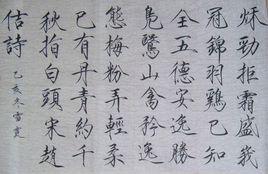 秌勁拒霜盛峩
冠錦羽鷄已知
全五德安逸勝
鳧鷖山禽矜逸
態梅粉弄輕柔
已有丹青約千
秋指白頭宋趙
佶詩
乙亥冬雪